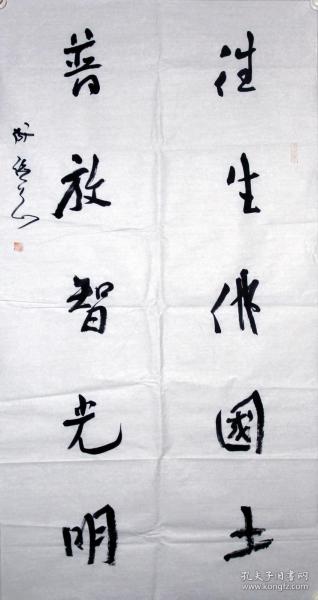 往生佛國土
普放智光明
孔夫子旧书网
www.kongfz.com